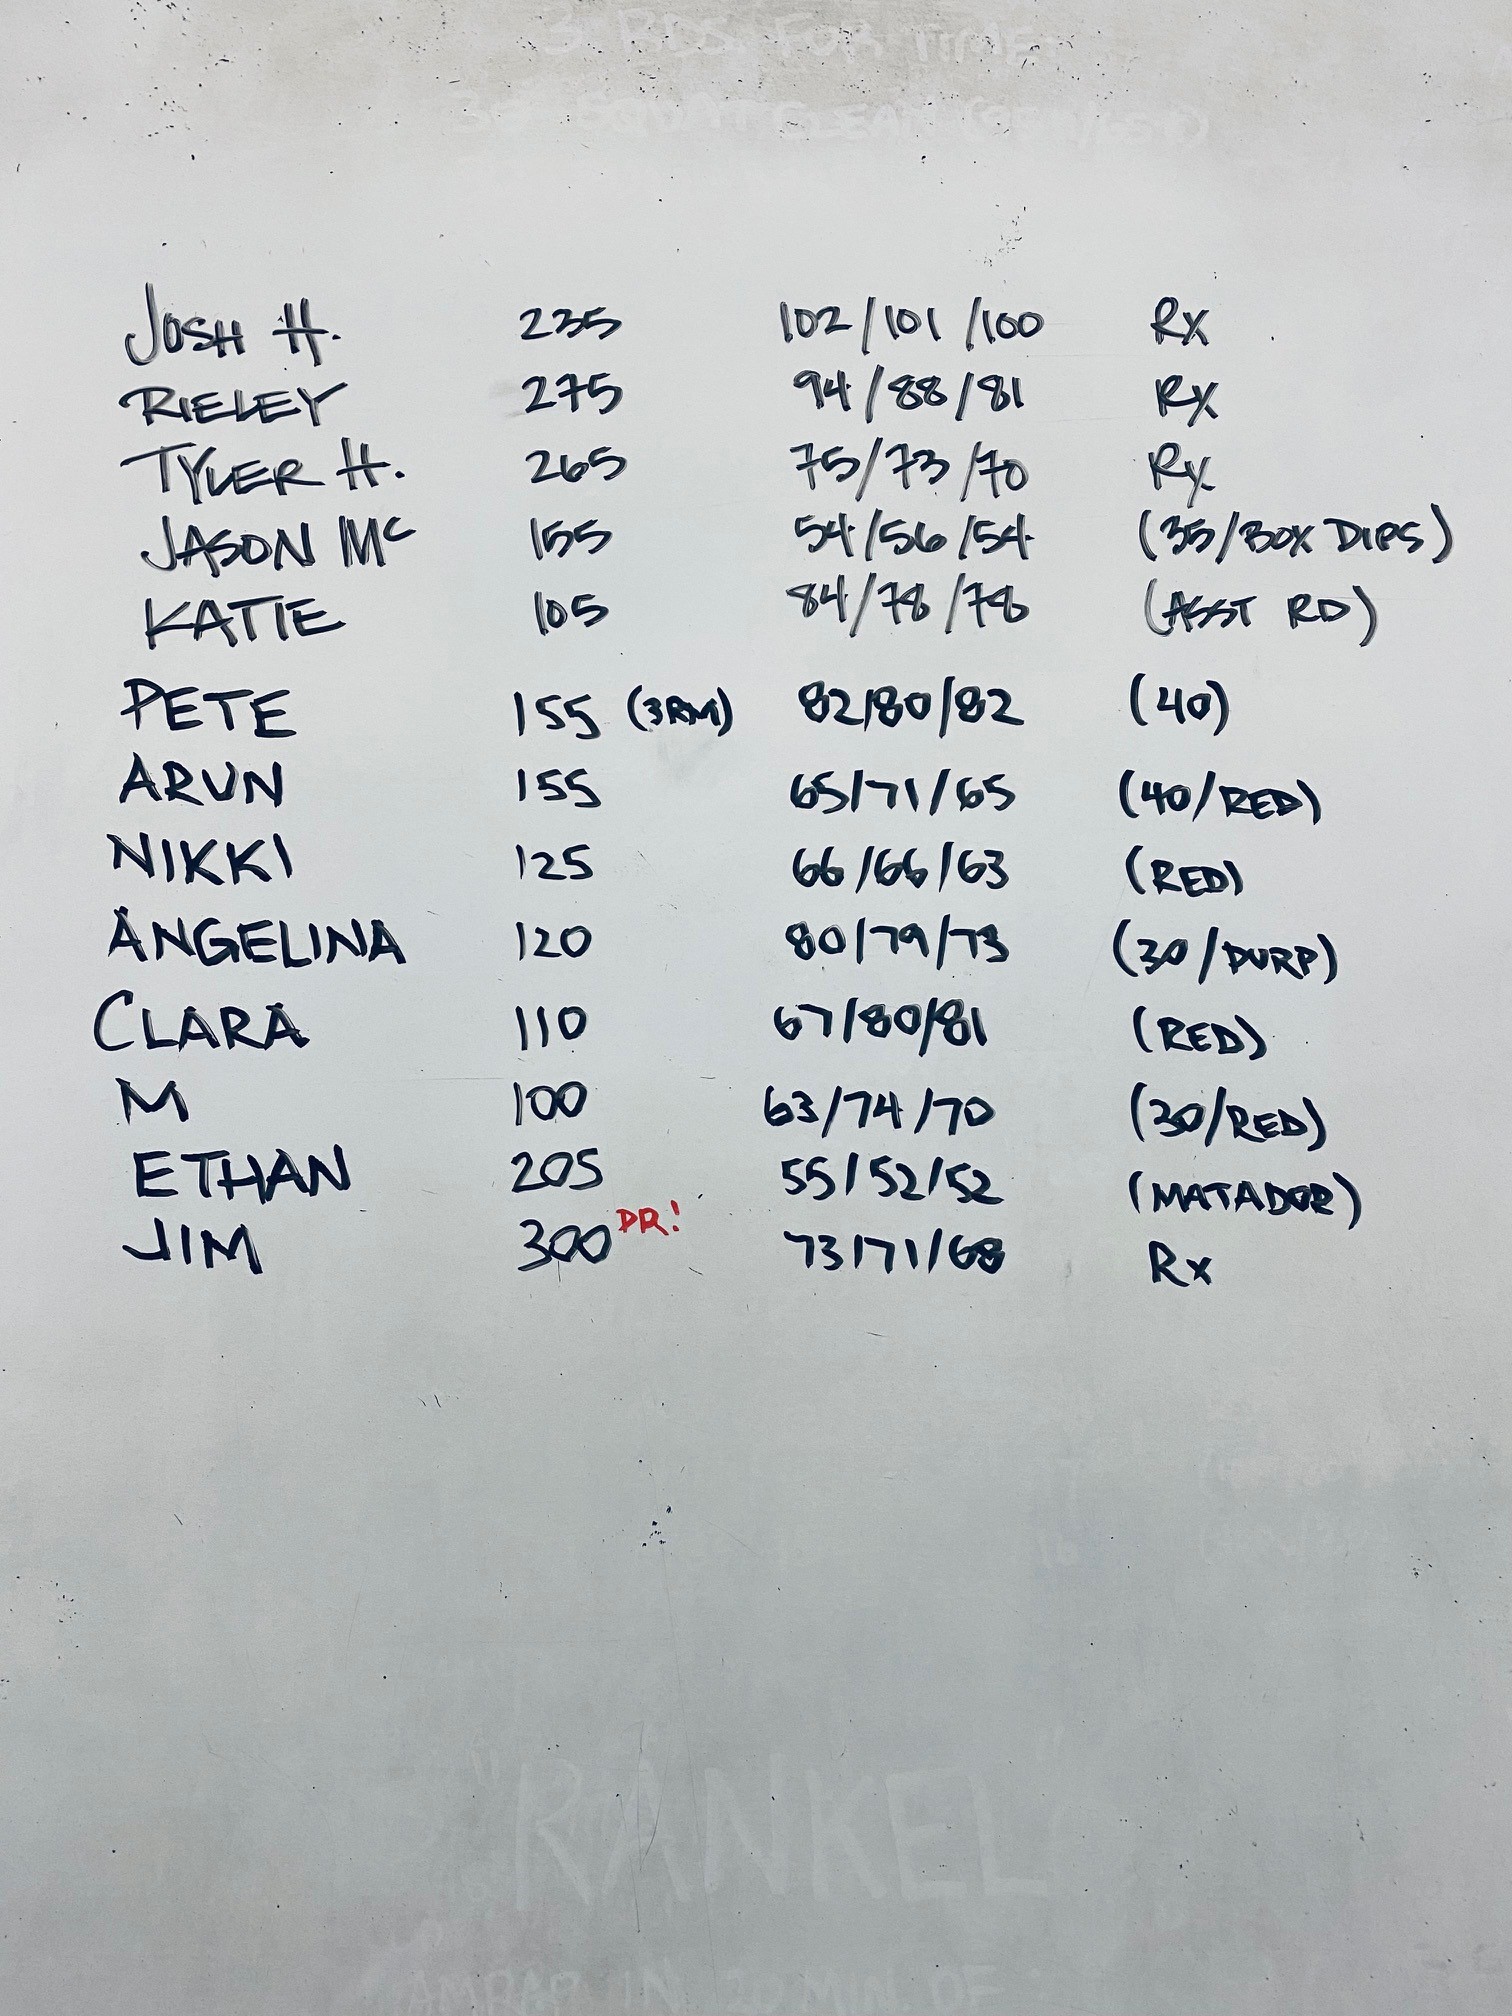 3 RDS FOR TIME:
JOSH H. 235 102/101/100 Rx
RIELEY 275 94/88/81 Rx
TYLER H. 265 75/73/70 Rx
JASON Mc 155 54/56/54 (35/BOX DIPS)
KATIE 105 84/78/78 (ASST RD)
PETE 155 (3RM) 82/80/82 (40)
ARUN 155 65/71/65 (40/RED)
NIKKI 125 66/66/63 (RED)
ANGELINA 120 80/79/73 (30/PURP)
CLARA 110 67/80/81 (RED)
M 100 63/74/70 (30/RED)
ETHAN 205 55/52/52 (MATADOR)
JIM 300 PR! 73/71/68 Rx
"RANKEL"
AMRAP IN 20 MIN. OF: